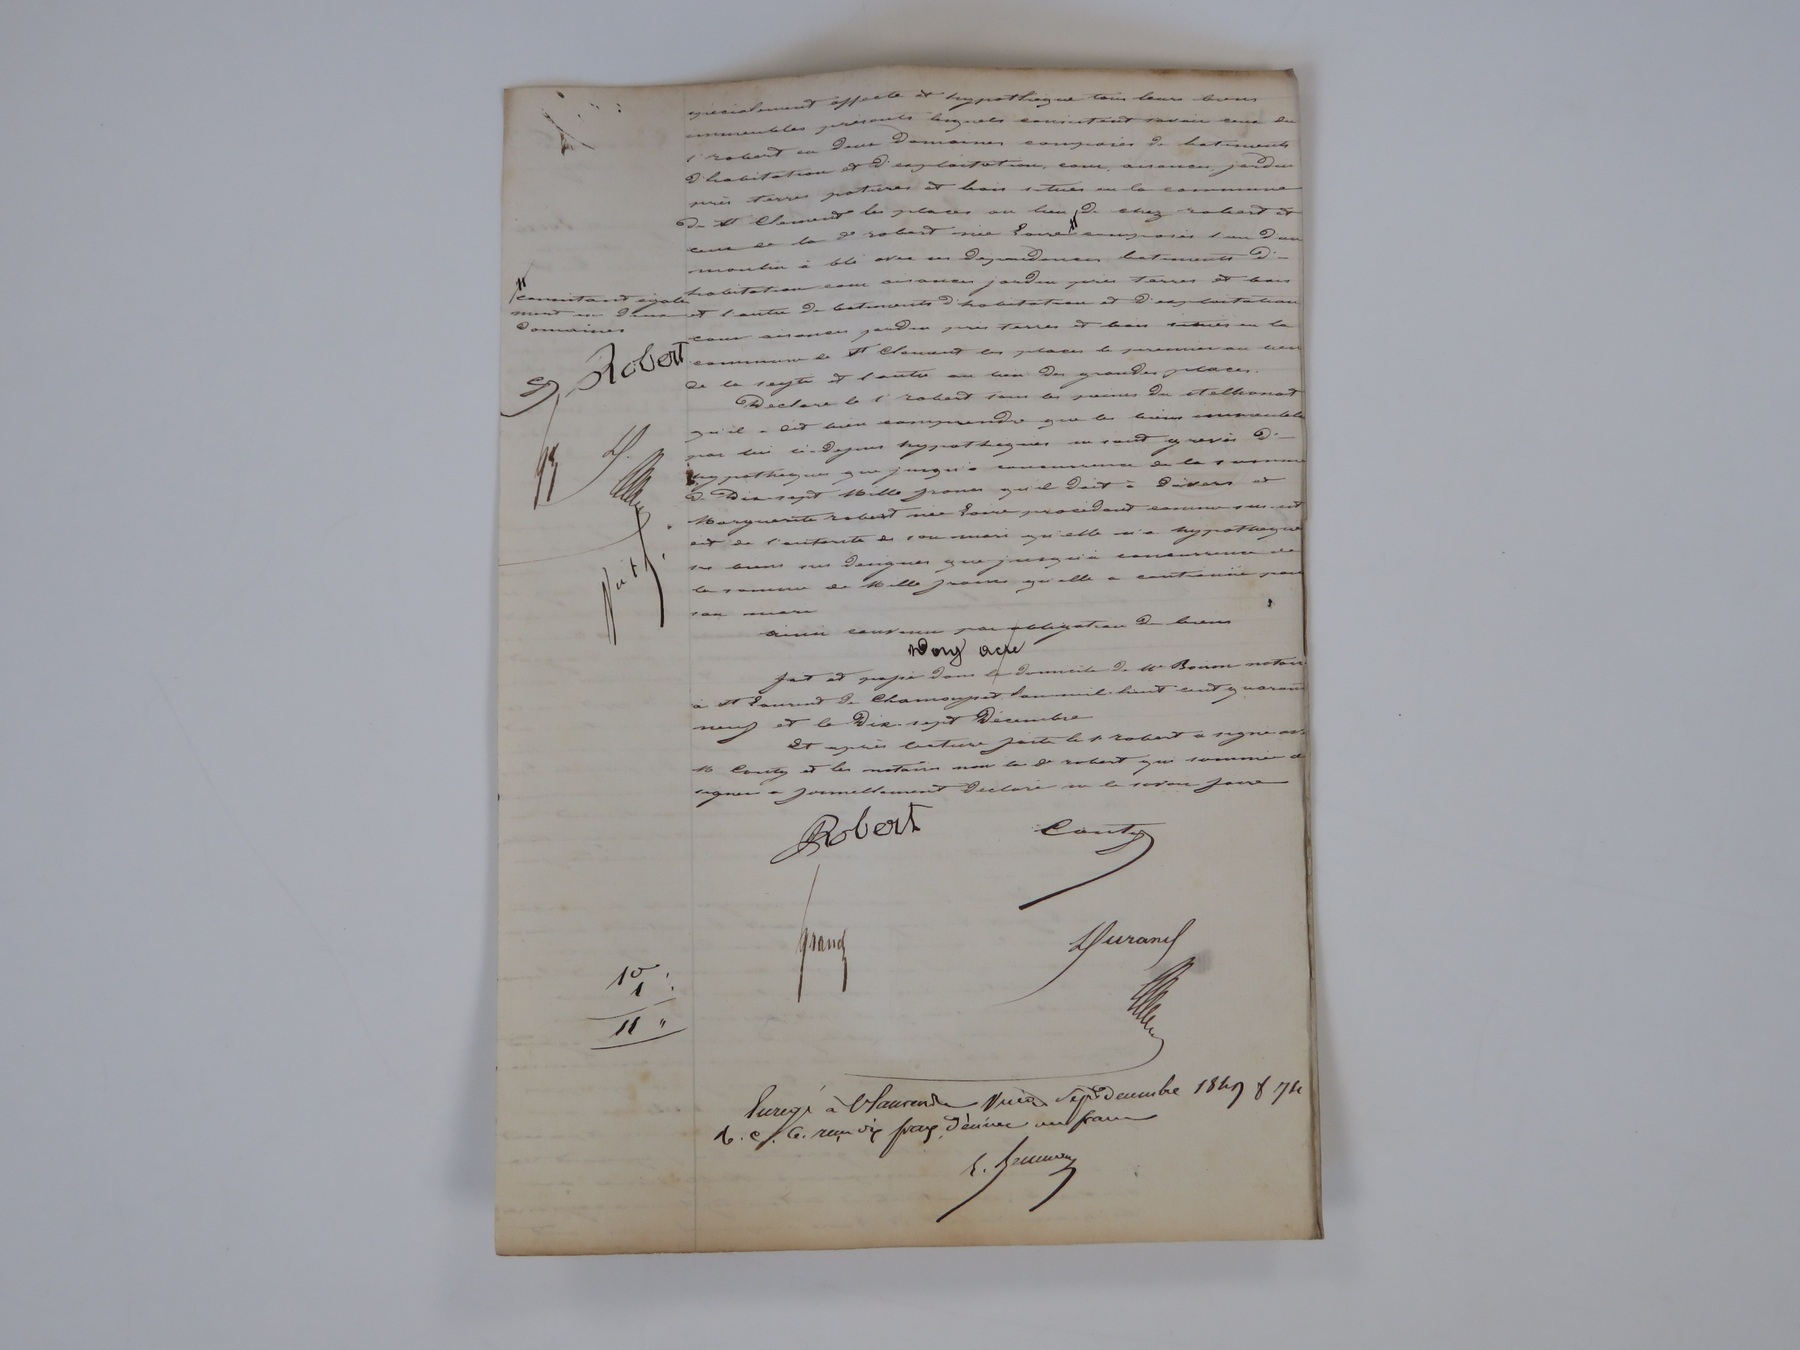 spécialement affecté et hypothéqué tous leurs biens
immeubles présents lesquels consistent savoir ceux du
s. robert en deux Domaines composés de batiments
d'habitation et d'exploitation, cour, aisances, jardin
près terres patures et bois situés en la commune
de St Clement les places au lieu de chez robert et
ceux de la de robert née Loire composés l'un d'un
moulin à blé avec ses dependances batiments d'-
habitation cour aisances jardin près terres et bois
et l'autre de batiments d'habitation et d'exploitation
cour aisances jardin près terres et bois situés en la
commune de St Clement les places le premier au lieu
de la et l'autre au lieu des grandes places.
" consistant égale
ment en deux
domaines
Robert
D.
Déclare le s. robert sous les peines du stellionat
qu'il a dit bien comprendre que les biens immeubles
par lui ci-dessus hypothéqués ne sont grevés d'-
hypothèques que jusqu'à concurrence de la somme
de Dix sept Mille francs qu'il doit à Divers et
Marguerite robert née Loire procédant comme sus est
dit de l'autorité de son mari qu'elle n'a hypothéqué
ses biens sus designés que jusqu'à concurrence de
la somme de Mille francs qu'elle a cautionné pour
son mari
ainsi convenu par obligation de biens
Dont acte
fait et passé dans le domicile de Me notaire
à St Laurent de Chamousset l'an mil huit cent quarante
neuf et le Dix sept Décembre
Et après lecture faite le s. robert a signé avec
M Couty et les notaires non la de robert qui sommée de
signer a formellement déclaré ne le savoir faire
Robert Couty
grand Durand
10 "
1 "
11 "
Enregé à St Laurent le Vingt Sept decembre 1849 f 74
v. c. 6. reçu dix francs, dixième un franc